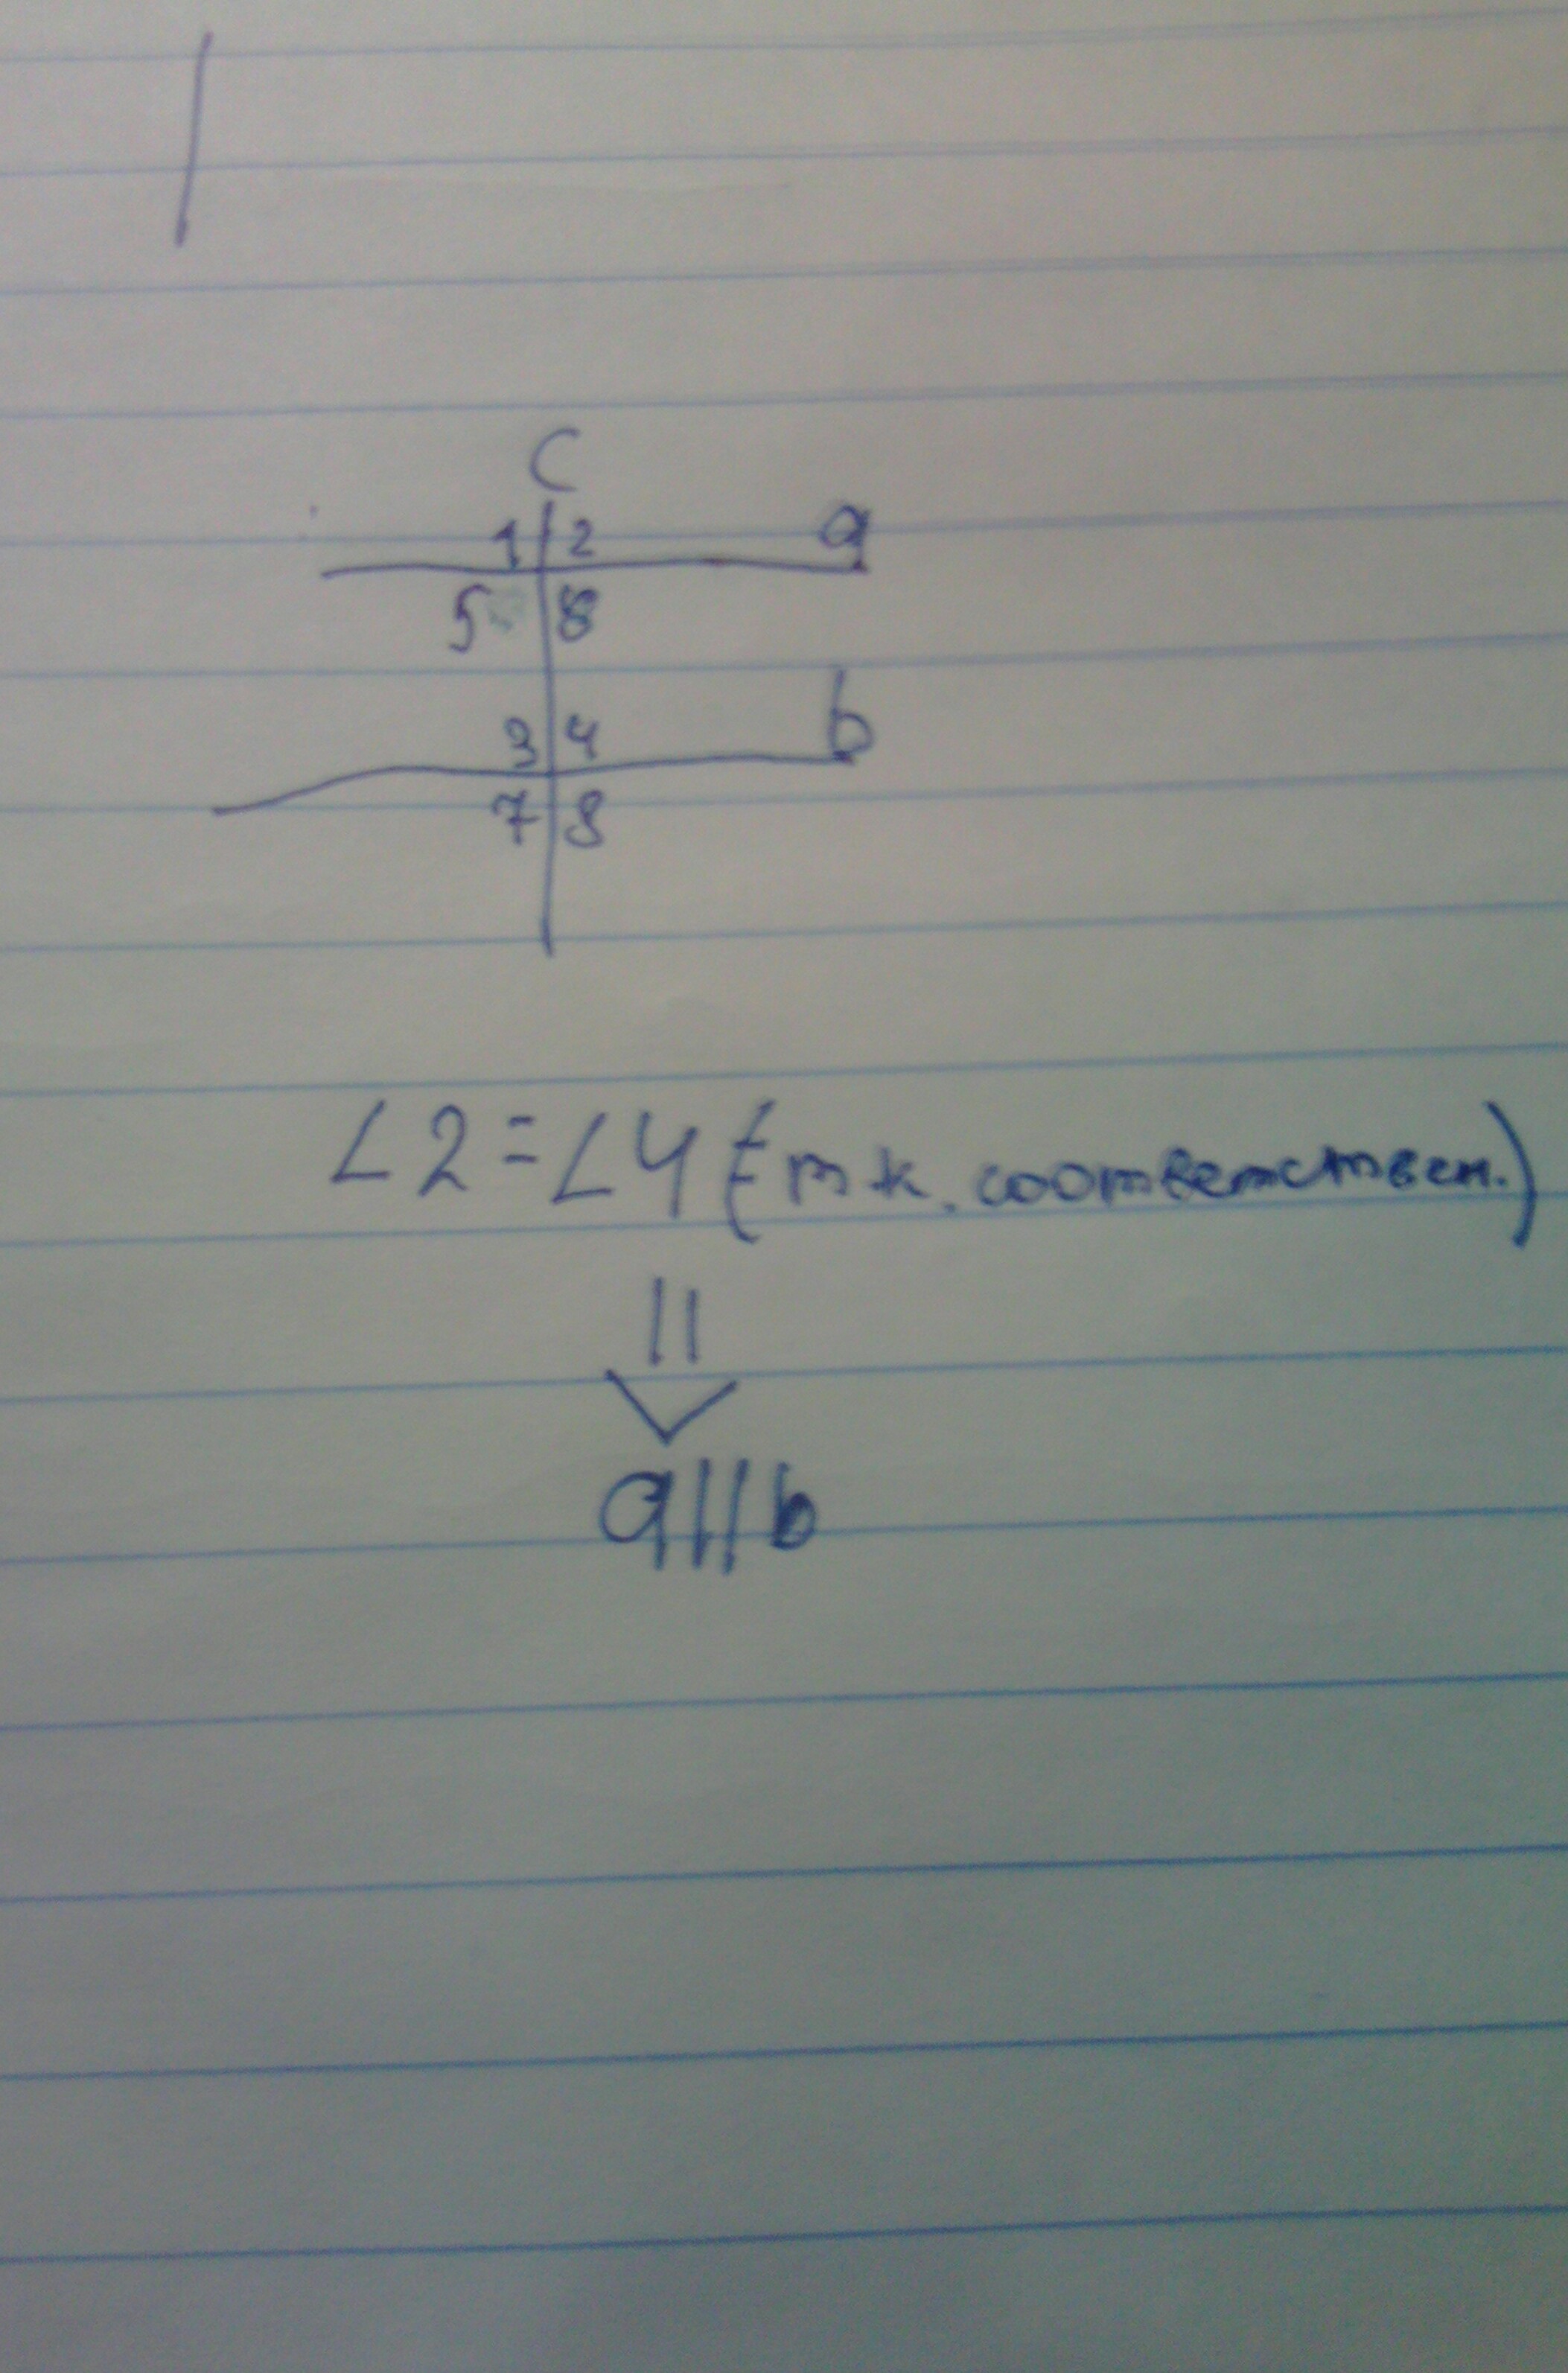 C
1 2 a
5 8
3 4 b
7 8
∠2=∠4 (т.к. соответствен.)
a||b